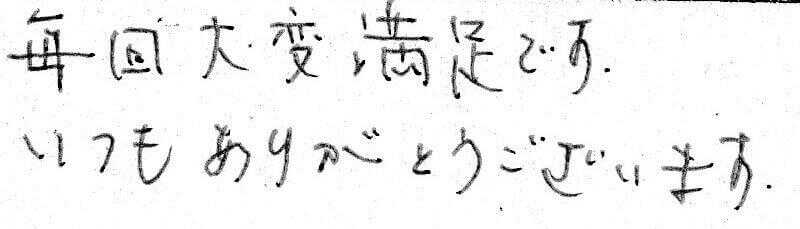 毎回大変満足です.
いつもありがとうございます.